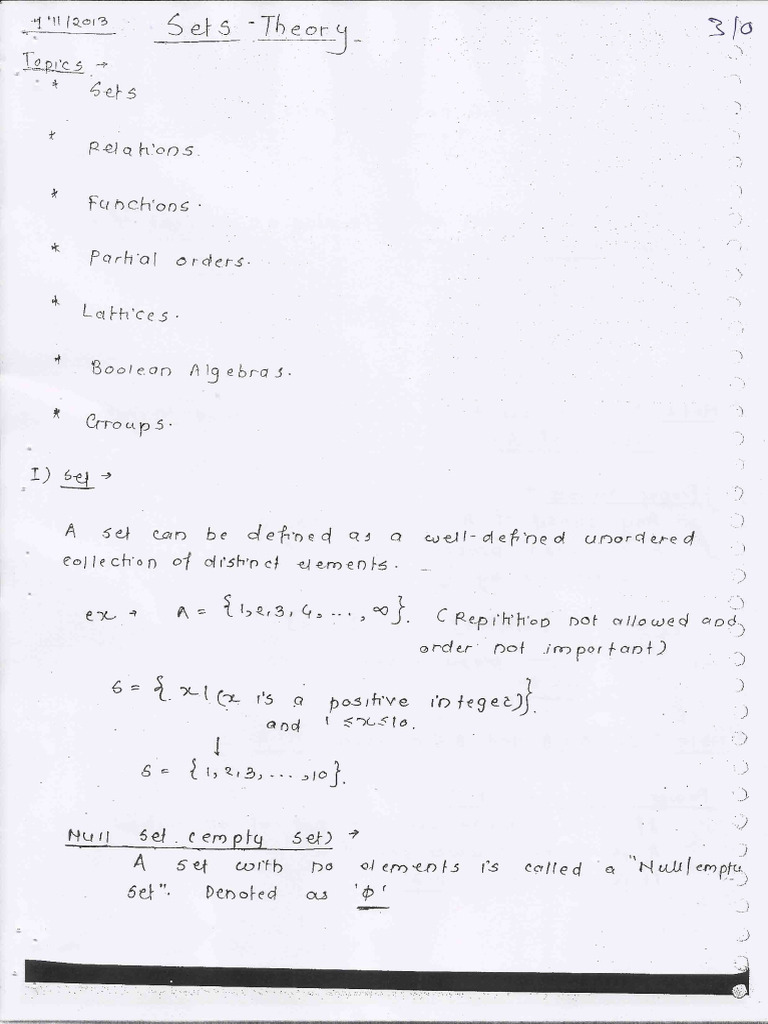 Sets - Theory
3/0
Topics →
* Sets
* Relations.
* Functions.
* Partial orders.
* Lattices.
* Boolean Algebras.
* Groups.
I) Set →
A set can be defined as a well-defined unordered
collection of distinct elements.
ex → A = {1,2,3,4,...,∞}. (Repitition not allowed and
order not important)
S = { x | (x is a positive integer)}.
and 1 ≤x≤10.
↓
S = {1,2,3,...,10}.
Null set (empty set) →
A set with no elements is called a "Null/empty
set". Denoted as 'Φ'